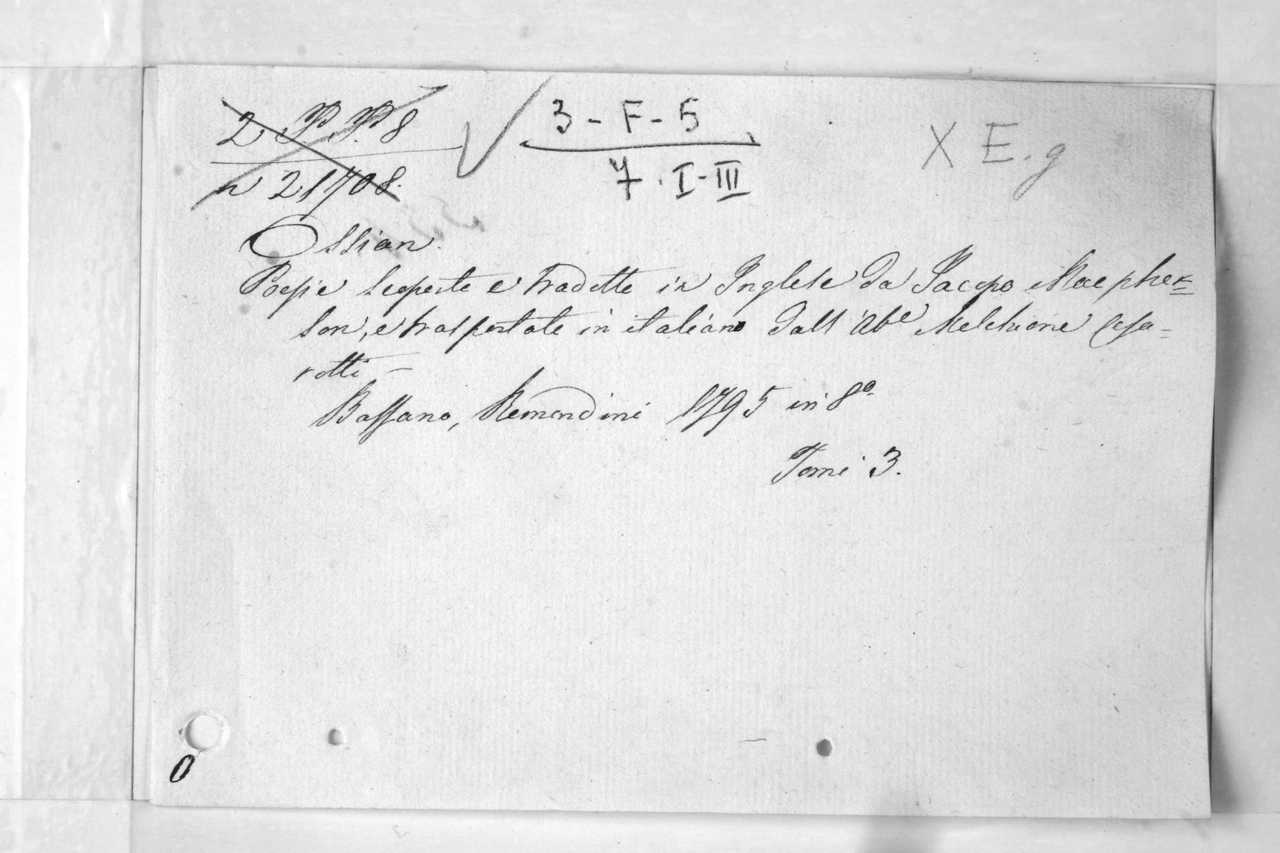 2 P.P. 8
n 21708.
3 - F - 5
7. I-III
X E. g
Ossian.
Poesie scoperte e tradotte in Inglese da Jacopo Macpher=
son, e trasportate in italiano dall'Ab.e Melchiorre Cesa=
rotti -
Bassano, Remondini 1795 in 8.o
Tomi 3.
O